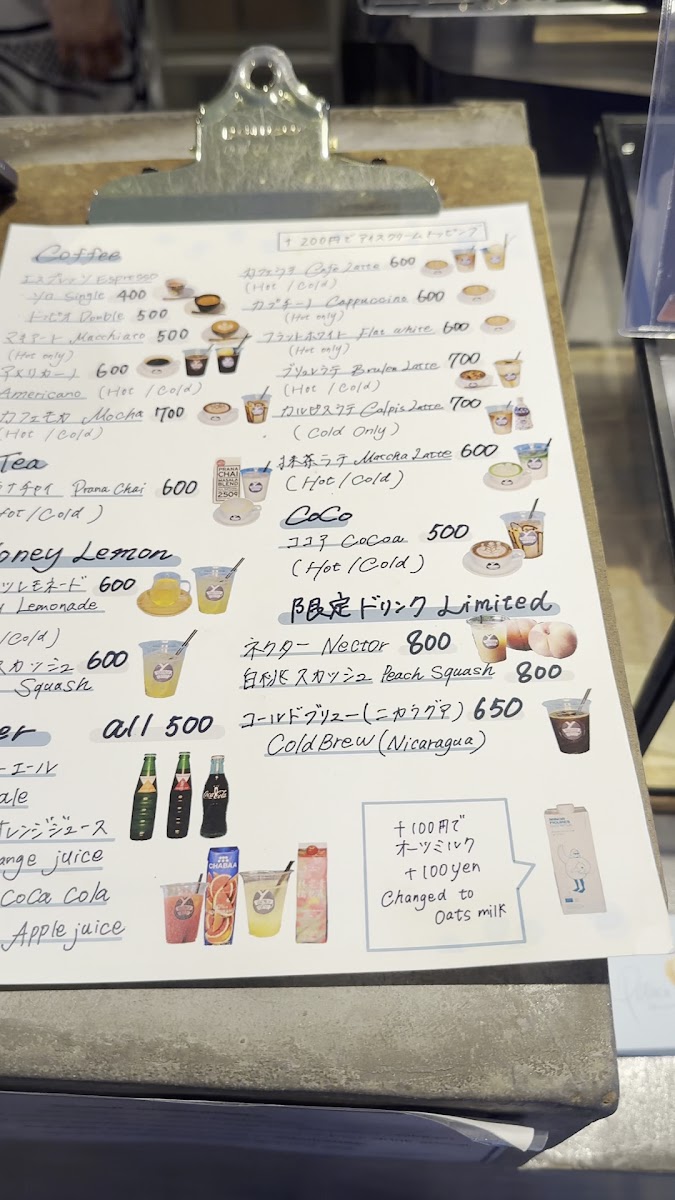 Coffee
エスプレッソ Espresso
ソロ Single 400
ドッピオ Double 500
マキアート Macchiato 500
(Hot only)
アメリカーノ 600
Americano (Hot / Cold)
カフェモカ Mocha 700
(Hot / Cold)
Tea
ナチャイ Prana Chai 600
Hot / Cold)
PRANA
CHAI
MASALA
BLEND
250g
oney Lemon
ツレモネード 600
Lemonade
/Cold)
スカッシュ 600
Squash
er all 500
ーエール
ale
オレンジジュース
ange juice
Coca Cola
Apple juice
Coca-Cola
CHABAA
+200円でアイスクリームトッピング
カフェラテ Cafe Latte 600
(Hot / Cold)
カプチーノ Cappuccino 600
(Hot only)
フラットホワイト Flat white 600
(Hot only)
ブリュレラテ Brulee Latte 700
(Hot / Cold)
カルピスラテ Calpis Latte 700
(Cold Only)
抹茶ラテ Maccha Latte 600
(Hot / Cold)
CoCo
ココア CoCoa 500
(Hot / Cold)
限定ドリンク Limited
ネクター Nector 800
白桃スカッシュ Peach Squash 800
コールドブリュー(ニカラグア) 650
Cold Brew (Nicaragua)
+100円で
オーツミルク
+100yen
Changed to
Oats milk